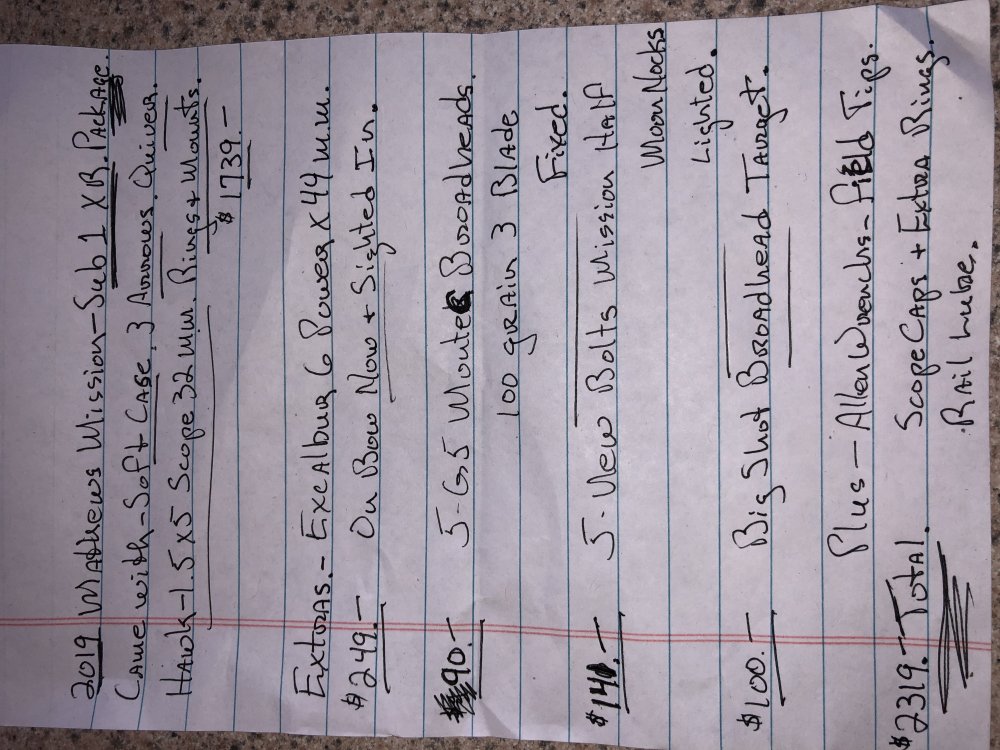 2019 Mathews Mission - Sub 1 XB. Package.
Came with - Soft Case, 3 Arrows, Quiver.
Hawk - 1.5 x 5 Scope 32 Mm. Rings + Mounts.
$1739.-
Extras. - Excalbur 6 Power x 44 m.m.
$249.- On Bow Now + Sighted In.
90.- 5-G5 Montec Broadheads.
100 grain 3 Blade
Fixed.
$141.- 5-New Bolts Mission Half
Moon Nocks
Lighted.
$100.- Big Shot Broadhead Target.
Plus - Allen Wrenchs - Field Tips.
$2319.- Total. Scope Caps + Extra Rings.
Rail Lube.